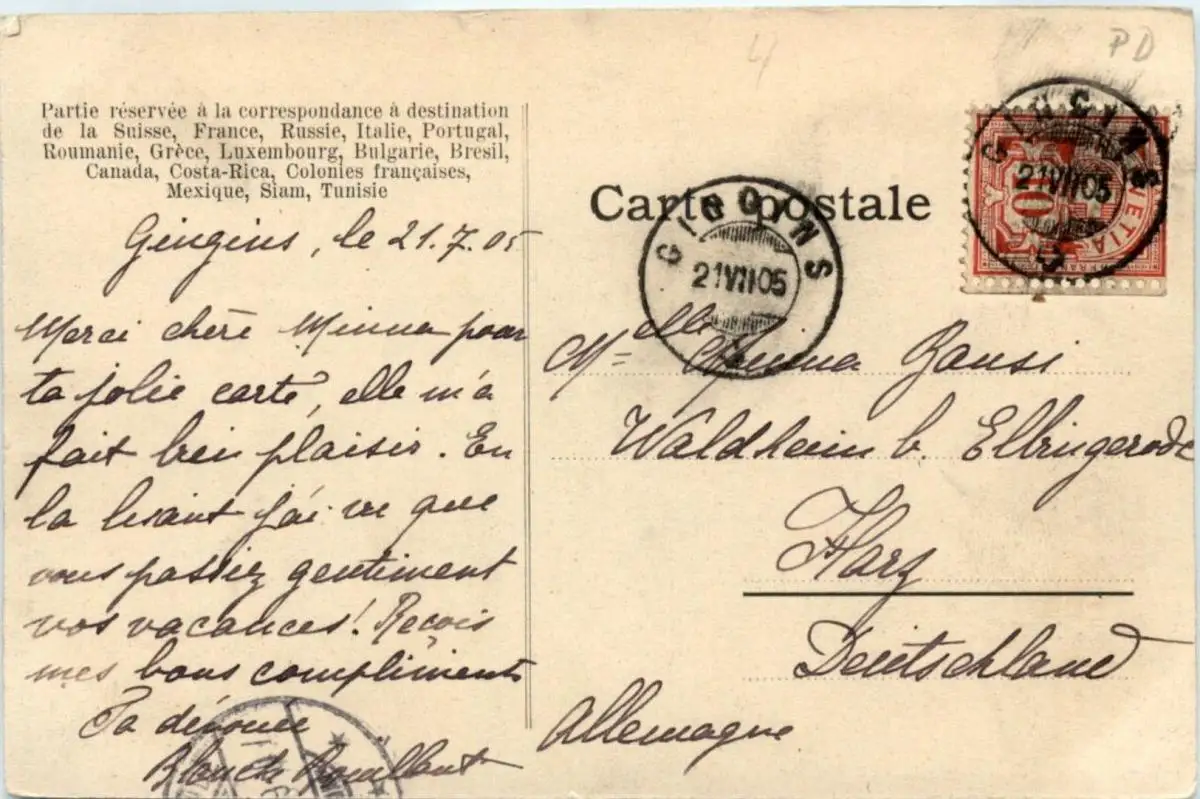 PD
Partie réservée à la correspondance à destination
de la Suisse, France, Russie, Italie, Portugal,
Roumanie, Grèce, Luxembourg, Bulgarie, Brésil,
Canada, Costa-Rica, Colonies françaises,
Mexique, Siam, Tunisie
Gingins, le 21.7.05
Merci chère Minna pour
ta jolie carte, elle m'a
fait bien plaisir. En
la lisant j'ai vu que
vous passiez gentiment
vos vacances! Reçois
mes bons compliments
Ta dévouée
Blanche
Carte postale
GINGINS
21 VII 05
GINGINS
21 VII 05
10
Melle Minna
Waldheim b. Elbingerode
Harz
Deutschland
Allemagne